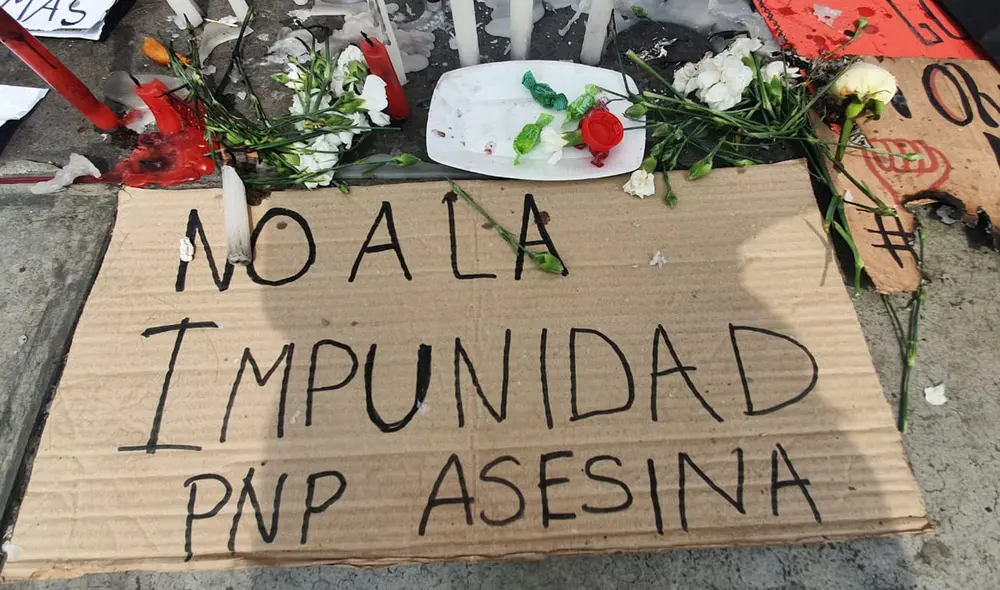 MAS
NO A LA
IMPUNIDAD
PNP ASESINA
#